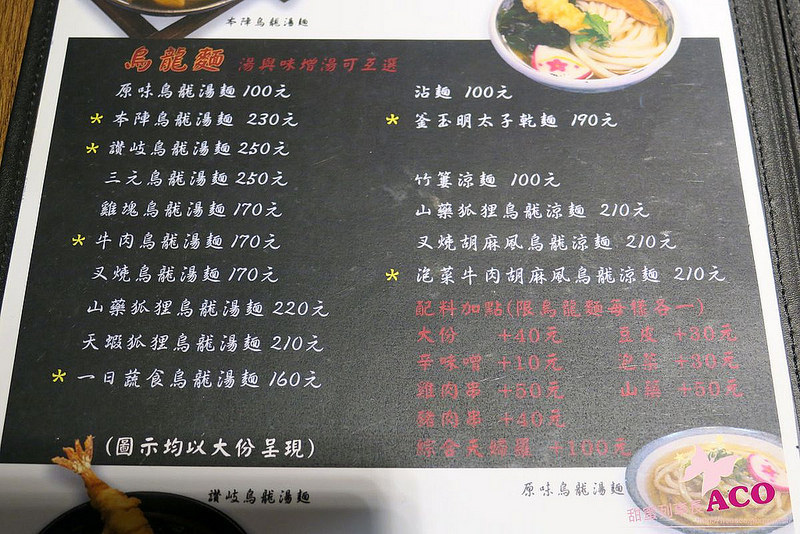 本陣烏龍湯麵
烏龍麵 湯與味增湯可互選
原味烏龍湯麵 100元
* 本陣烏龍湯麵 230元
* 讚岐烏龍湯麵 250元
三元烏龍湯麵 250元
雞塊烏龍湯麵 170元
* 牛肉烏龍湯麵 170元
叉燒烏龍湯麵 170元
山藥狐狸烏龍湯麵 220元
天蝦狐狸烏龍湯麵 210元
* 一日蔬食烏龍湯麵 160元
(圖示均以大份呈現)
沾麵 100元
* 釜玉明太子乾麵 190元
竹簍涼麵 100元
山藥狐狸烏龍涼麵 210元
叉燒胡麻風烏龍涼麵 210元
* 泡菜牛肉胡麻風烏龍涼麵 210元
配料加點(限烏龍麵每樣各一)
大份 +40元 豆皮 +30元
辛味噌 +10元 泡菜 +30元
雞肉串 +50元 山藥 +50元
豬肉串 +40元
綜合天婦羅 +100元
讚岐烏龍湯麵
原味烏龍湯麵
ACO